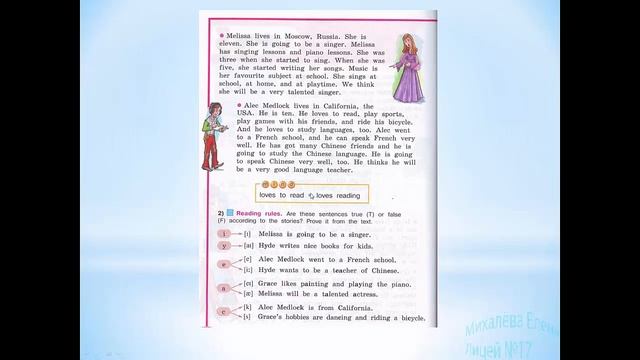 Melissa lives in Moscow, Russia. She is
eleven. She is going to be a singer. Melissa
has singing lessons and piano lessons. She was
three when she started to sing. When she was
five, she started writing her songs. Music is
her favourite subject at school. She sings at
school, at home, and at playtime. We think
she will be a very talented singer.
Alec Medlock lives in California, the
USA. He is ten. He loves to read, play sports,
play games with his friends, and ride his bicycle.
And he loves to study languages, too. Alec went
to a French school, and he can speak French very
well. He has got many Chinese friends and he is
going to study the Chinese language. He is going
to speak Chinese very well, too. He thinks he will
be a very good language teacher.
loves to read = loves reading
2) Reading rules. Are these sentences true (T) or false
(F) according to the stories? Prove it from the text.
i [ɪ] Melissa is going to be a singer.
y [aɪ] Hyde writes nice books for kids.
e [e] Alec Medlock went to a French school.
[i:] Hyde wants to be a teacher of Chinese.
a [eɪ] Grace likes painting and playing the piano.
[æ] Melissa will be a talented actress.
c [k] Alec Medlock is from California.
[s] Grace's hobbies are dancing and riding a bicycle.
Михалева Елена
лицей №17